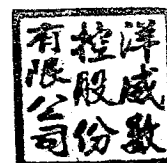 洋威数
控股份
有限公司